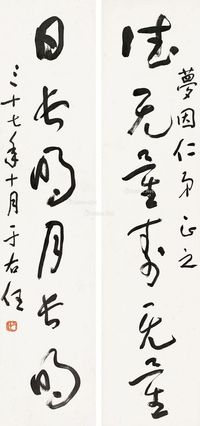 夢因仁弟正之
德无量壽无量
日长明月长明
三十七年十月于右任